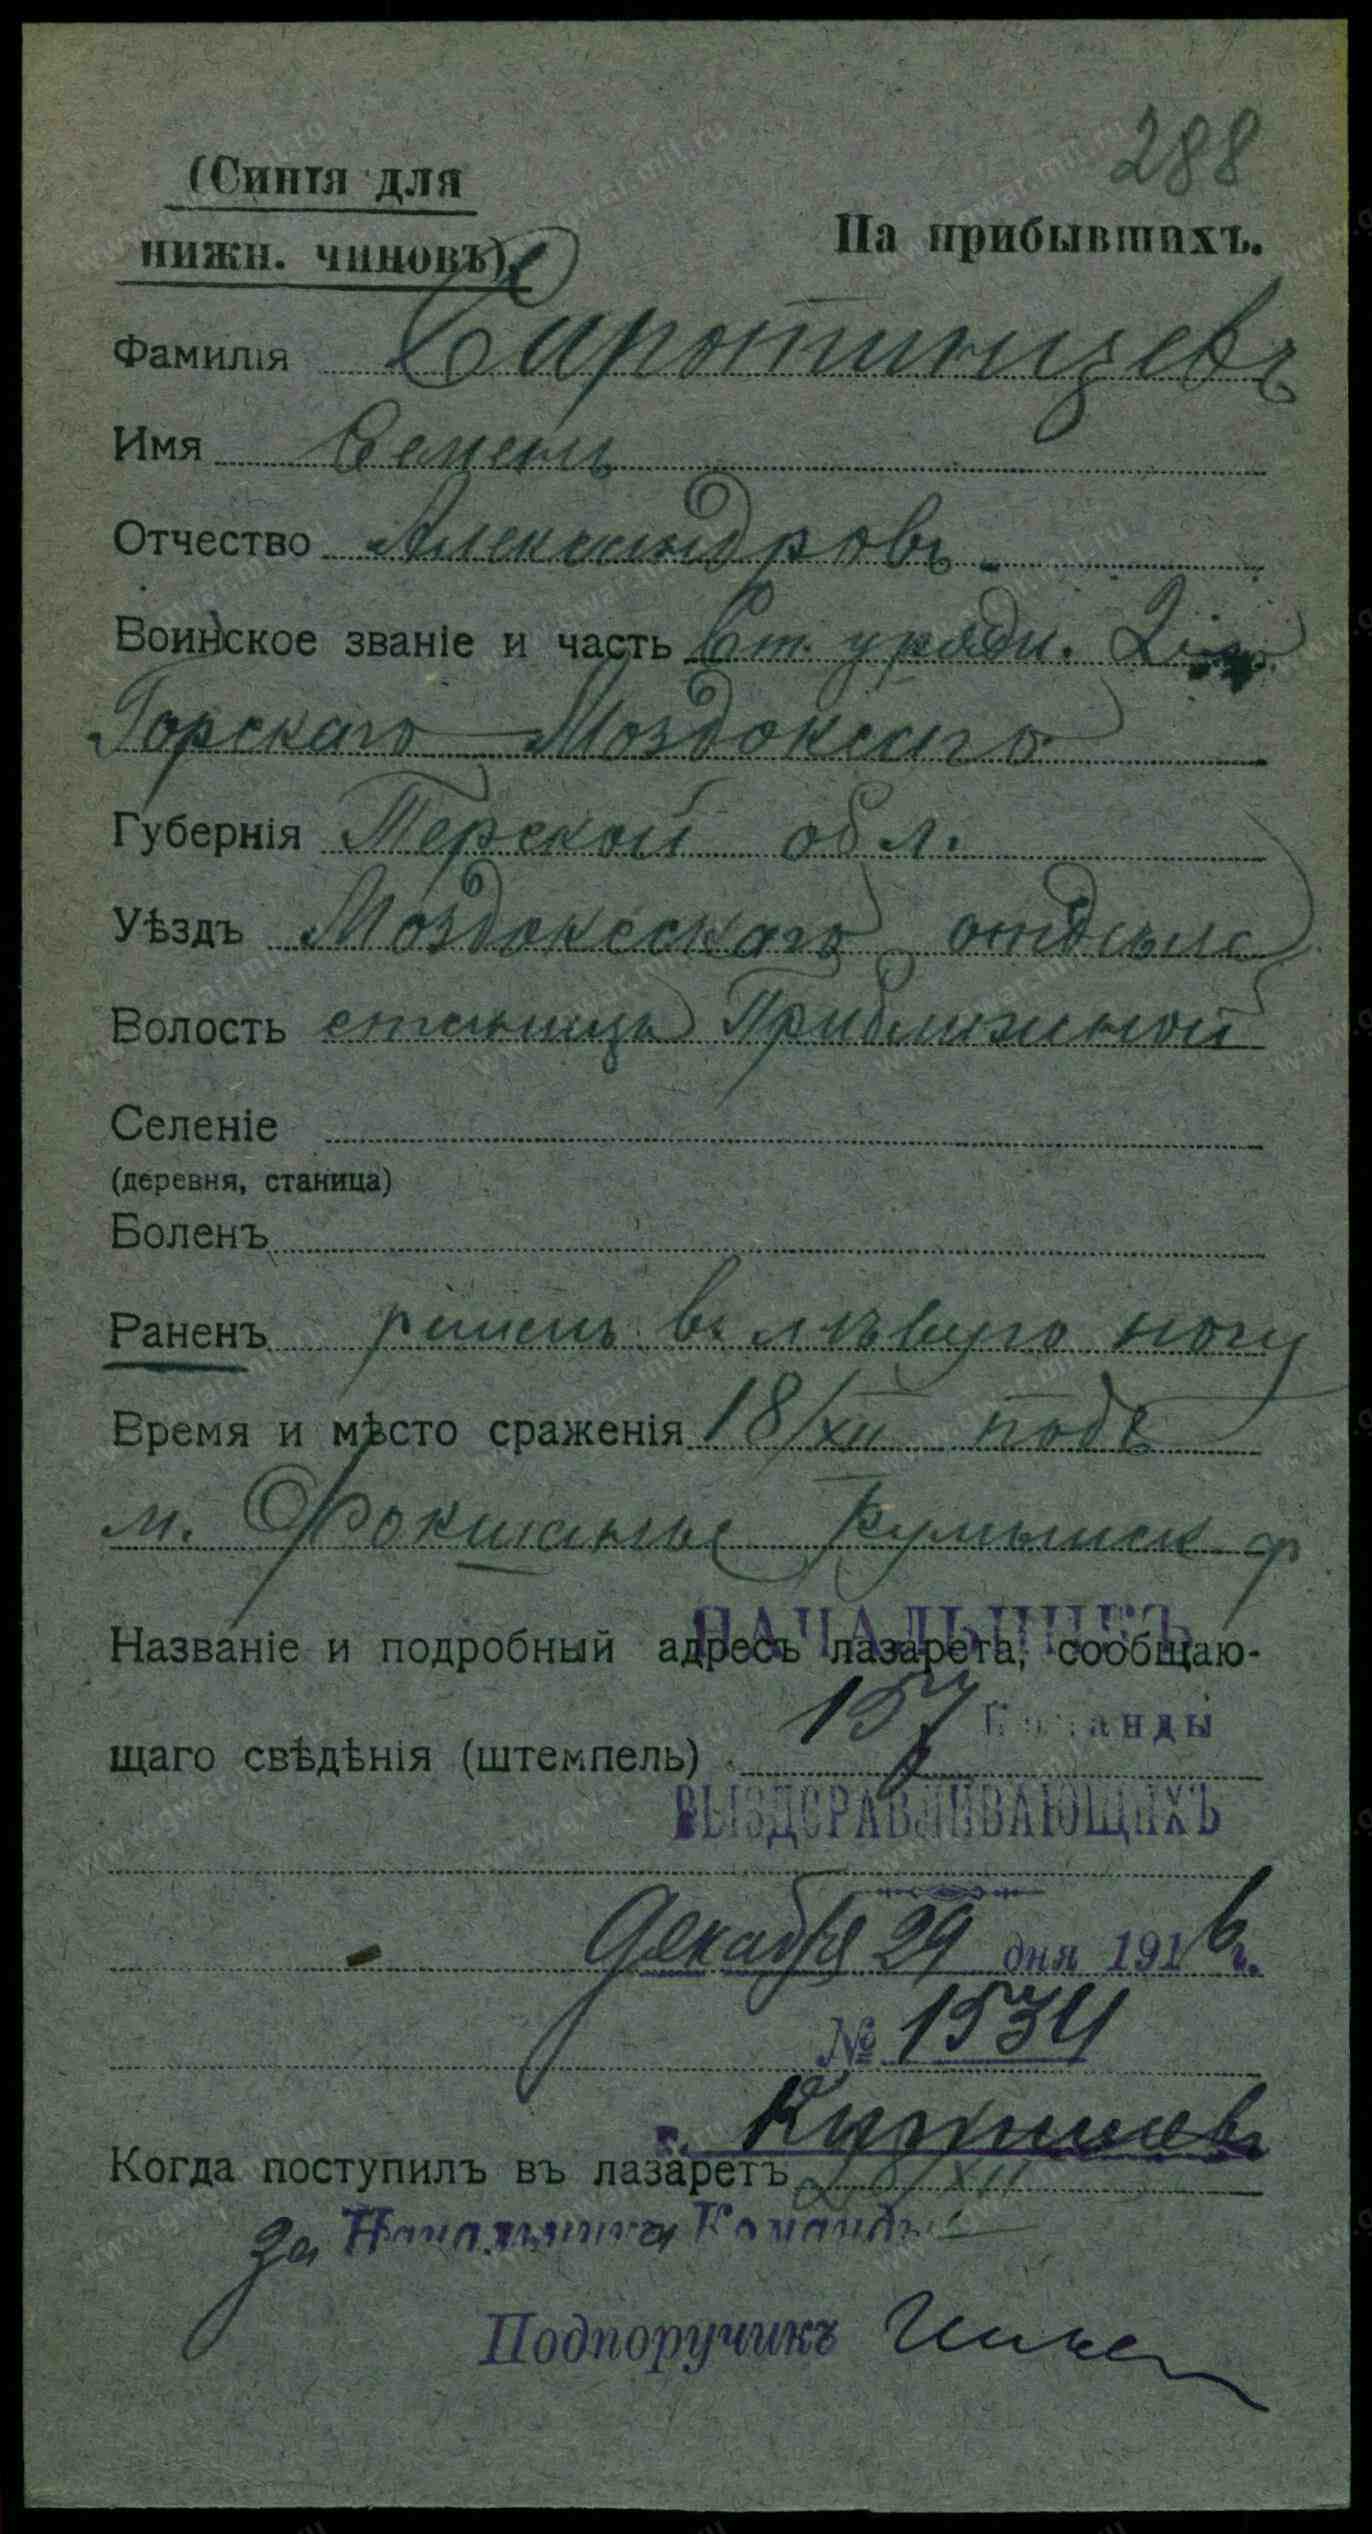 288
(Синія для
нижн. чиновъ)
На прибывшихъ.
Фамилія Сиротинцевъ
Имя Семенъ
Отчество Александровъ.
Воинское званіе и часть Ст. урядн. 2го
Горскаго-Моздокскаго
Губернія Терской обл.
Уѣздъ Моздокскаго отдѣла
Волость станица Приближной
Селеніе
(деревня, станица)
Боленъ
Раненъ раненъ въ лѣвую ногу
Время и мѣсто сраженія 18/XII подъ
м. Фокшаны Румынск. ф
НАЧАЛЬНИКЪ
Названіе и подробный адресъ лазарета, сообщаю-
157 Команды
щаго свѣдѣнія (штемпель)
ВЫЗДОРАВЛИВАЮЩИХЪ
Декабря 29 дня 1916 г.
№ 1534
г.
Когда поступилъ въ лазаретъ 28/XII
За Начальника Команды
Подпоручикъ